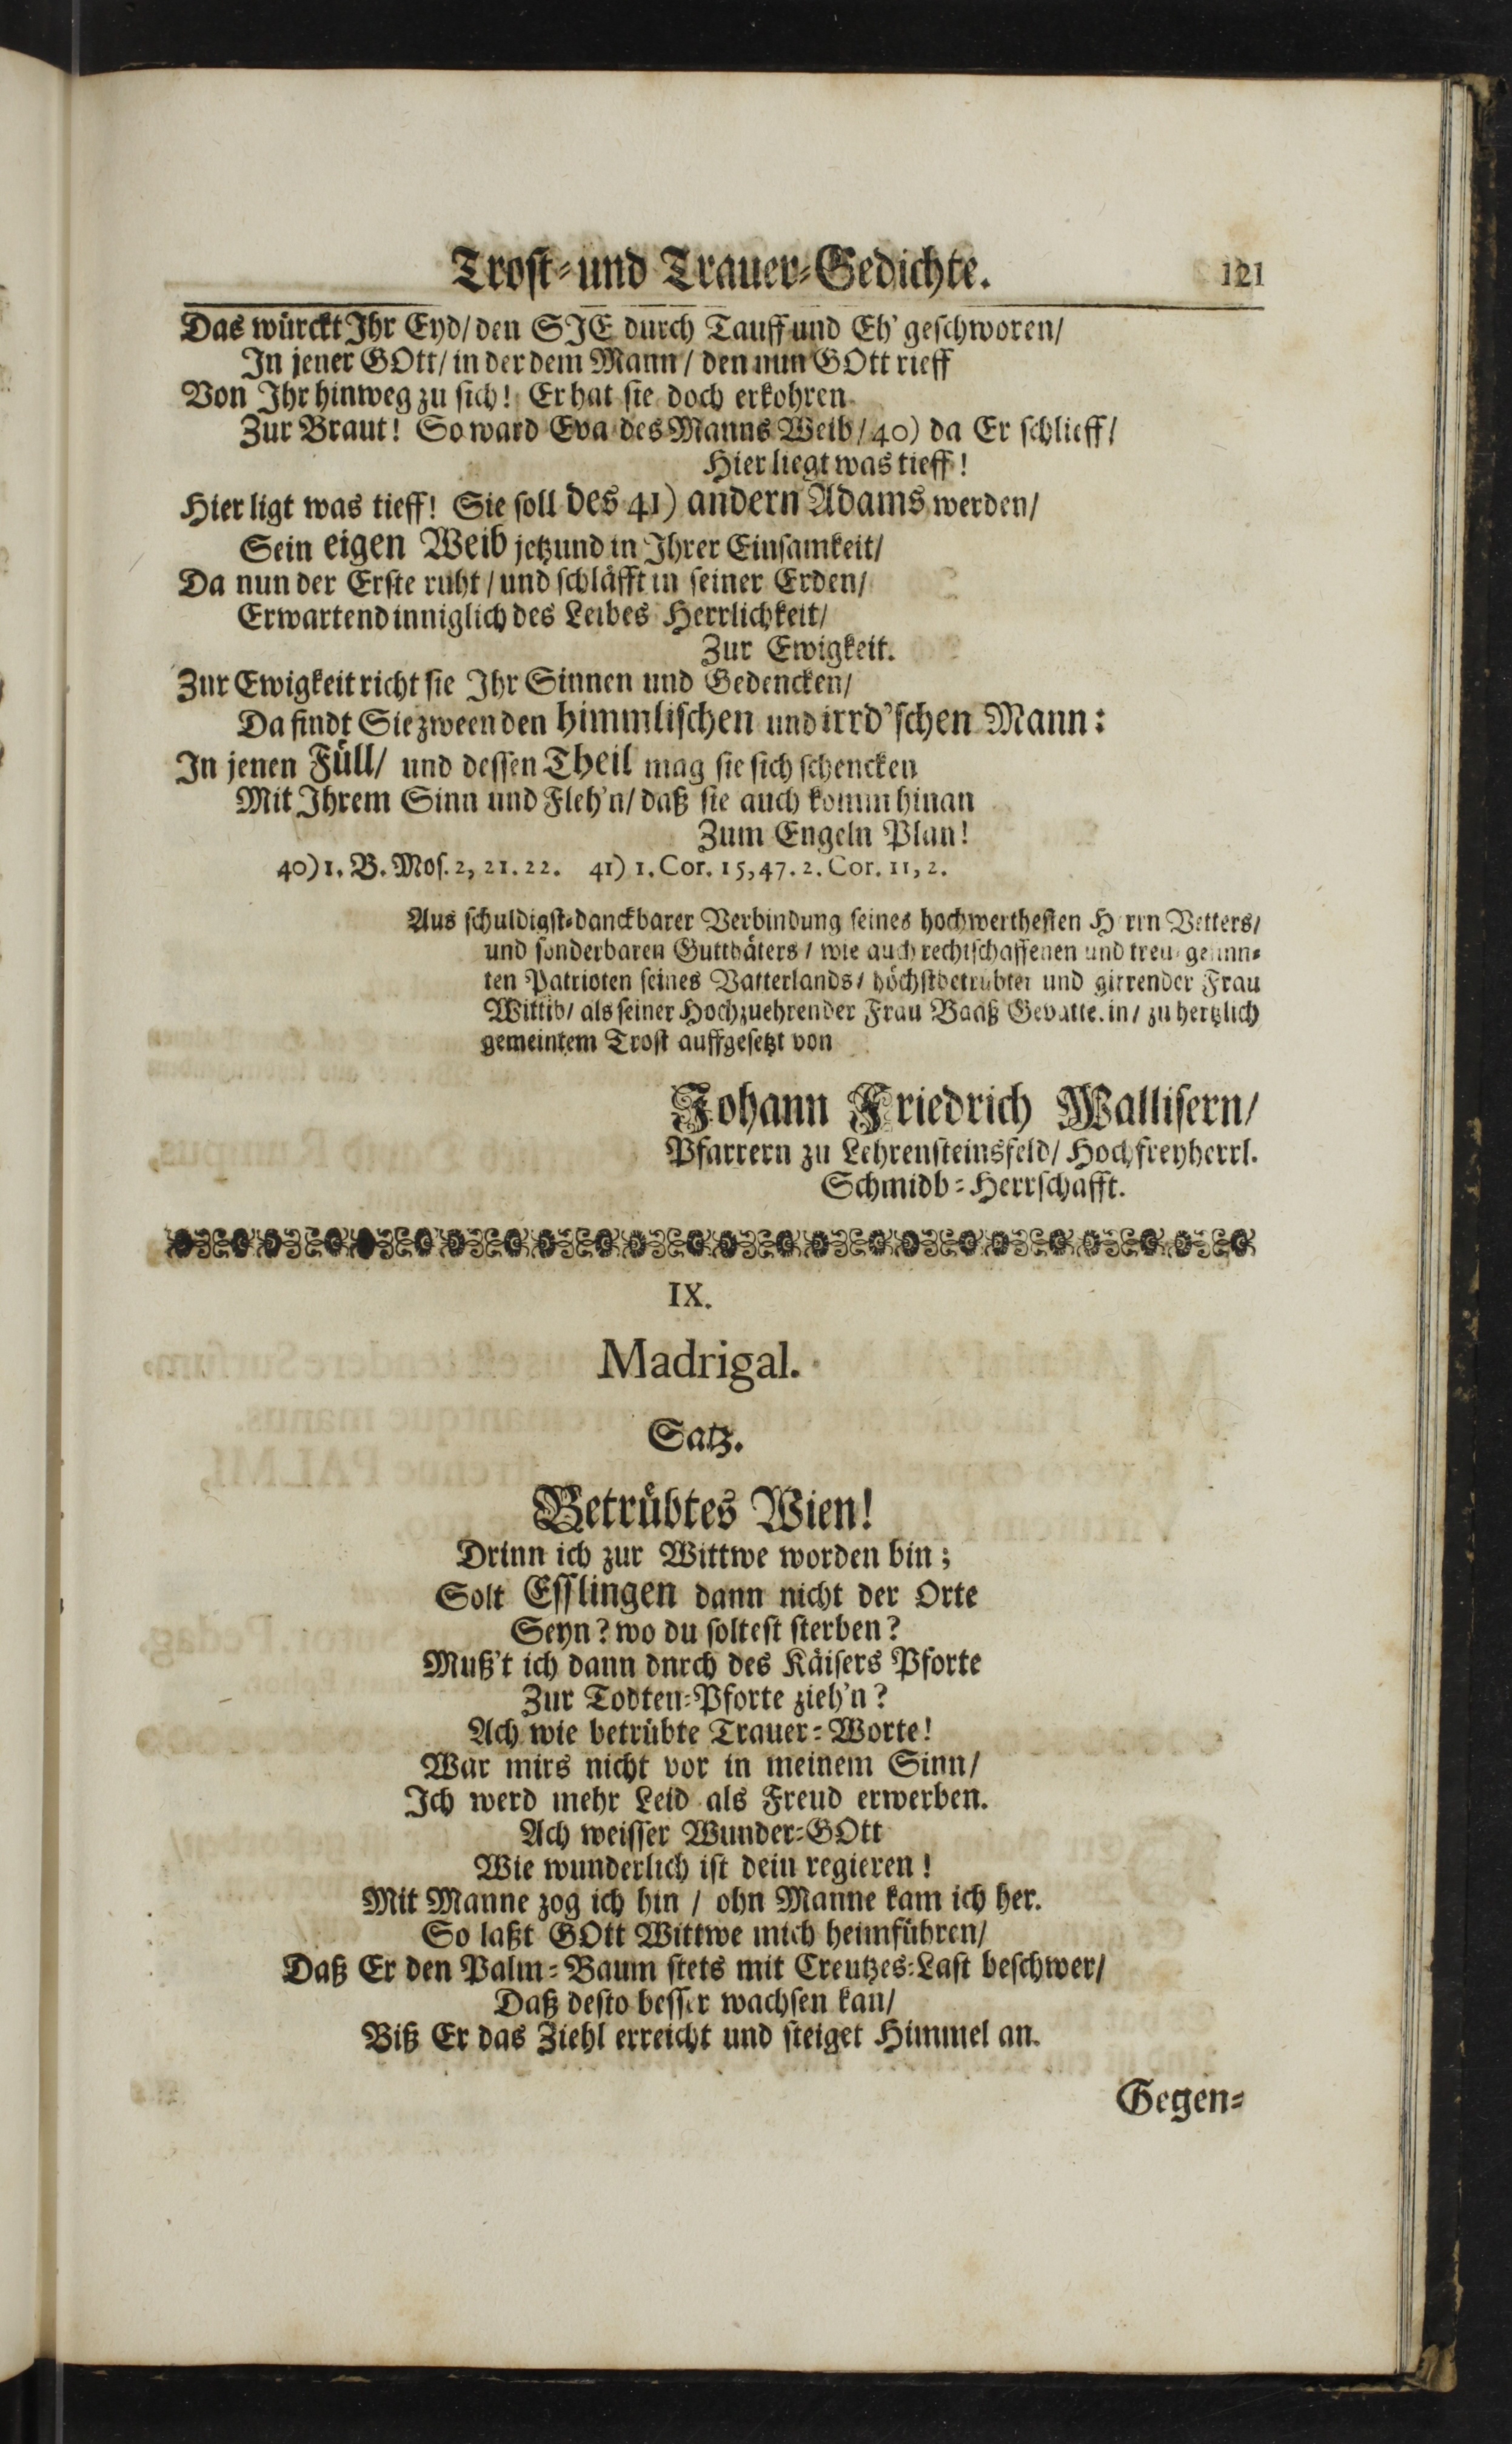 Trost- und Trauer-Gedichte. 121
Das würckt Ihr Eyd/ den SIE durch Tauff und Eh' geschworen/
In jener GOtt/ in der dem Mann/ den nun GOtt rieff
Von Ihr hinweg zu sich! Er hat sie doch erkohren
Zur Braut! So ward Eva des Manns Weib/ 40) da Er schlieff/
Hier liegt was tieff!
Hier ligt was tieff! Sie soll des 41) andern Adams werden/
Sein eigen Weib jetzund in Ihrer Einsamkeit/
Da nun der Erste ruht/ und schläfft in seiner Erden/
Erwartend inniglich des Leibes Herrlichkeit/
Zur Ewigkeit.
Zur Ewigkeit richt sie Ihr Sinnen und Gedencken/
Da findt Sie zween den himmlischen und irrd'schen Mann:
In jenen Füll/ und dessen Theil mag sie sich schencken
Mit Ihrem Sinn und Fleh'n/ daß sie auch komm hinan
Zum Engeln Plan!
40) 1. B. Mos. 2, 21. 22. 41) 1. Cor. 15, 47. 2. Cor. 11, 2.
Aus schuldigst-danckbarer Verbindung seines hochwerthesten Vetters/
und sonderbaren Gutthäters/ wie auch rechtschaffenen und treu-
ten Patrioten seines Vatterlands/ höchstbetrübter und girrender Frau
Wittib/ als seiner Hochzuehrender Frau Baaß zu hertzlich
gemeintem Trost auffgesetzt von
Johann Friedrich Wallisern/
Pfarrern zu Lehrensteinsfeld/ Hochfreyherrl.
Schmidb-Herrschafft.
IX.
Madrigal.
Satz.
Betrübtes Wien!
Drinn ich zur Wittwe worden bin;
Solt Esslingen dann nicht der Orte
Seyn? wo du soltest sterben?
Muß't ich dann dnrch des Käisers Pforte
Zur Todten-Pforte zieh'n?
Ach wie betrübte Trauer-Worte!
War mirs nicht vor in meinem Sinn/
Ich werd mehr Leid als Freud erwerben.
Ach weisser Wunder-GOtt
Wie wunderlich ist dein regieren!
Mit Manne zog ich hin / ohn Manne kam ich her.
So laßt GOtt Wittwe mich heimführen/
Daß Er den Palm-Baum stets mit Creutzes-Last beschwer/
Daß desto besser wachsen kan/
Biß Er das Ziehl erreicht und steiget Himmel an.
Gegen-